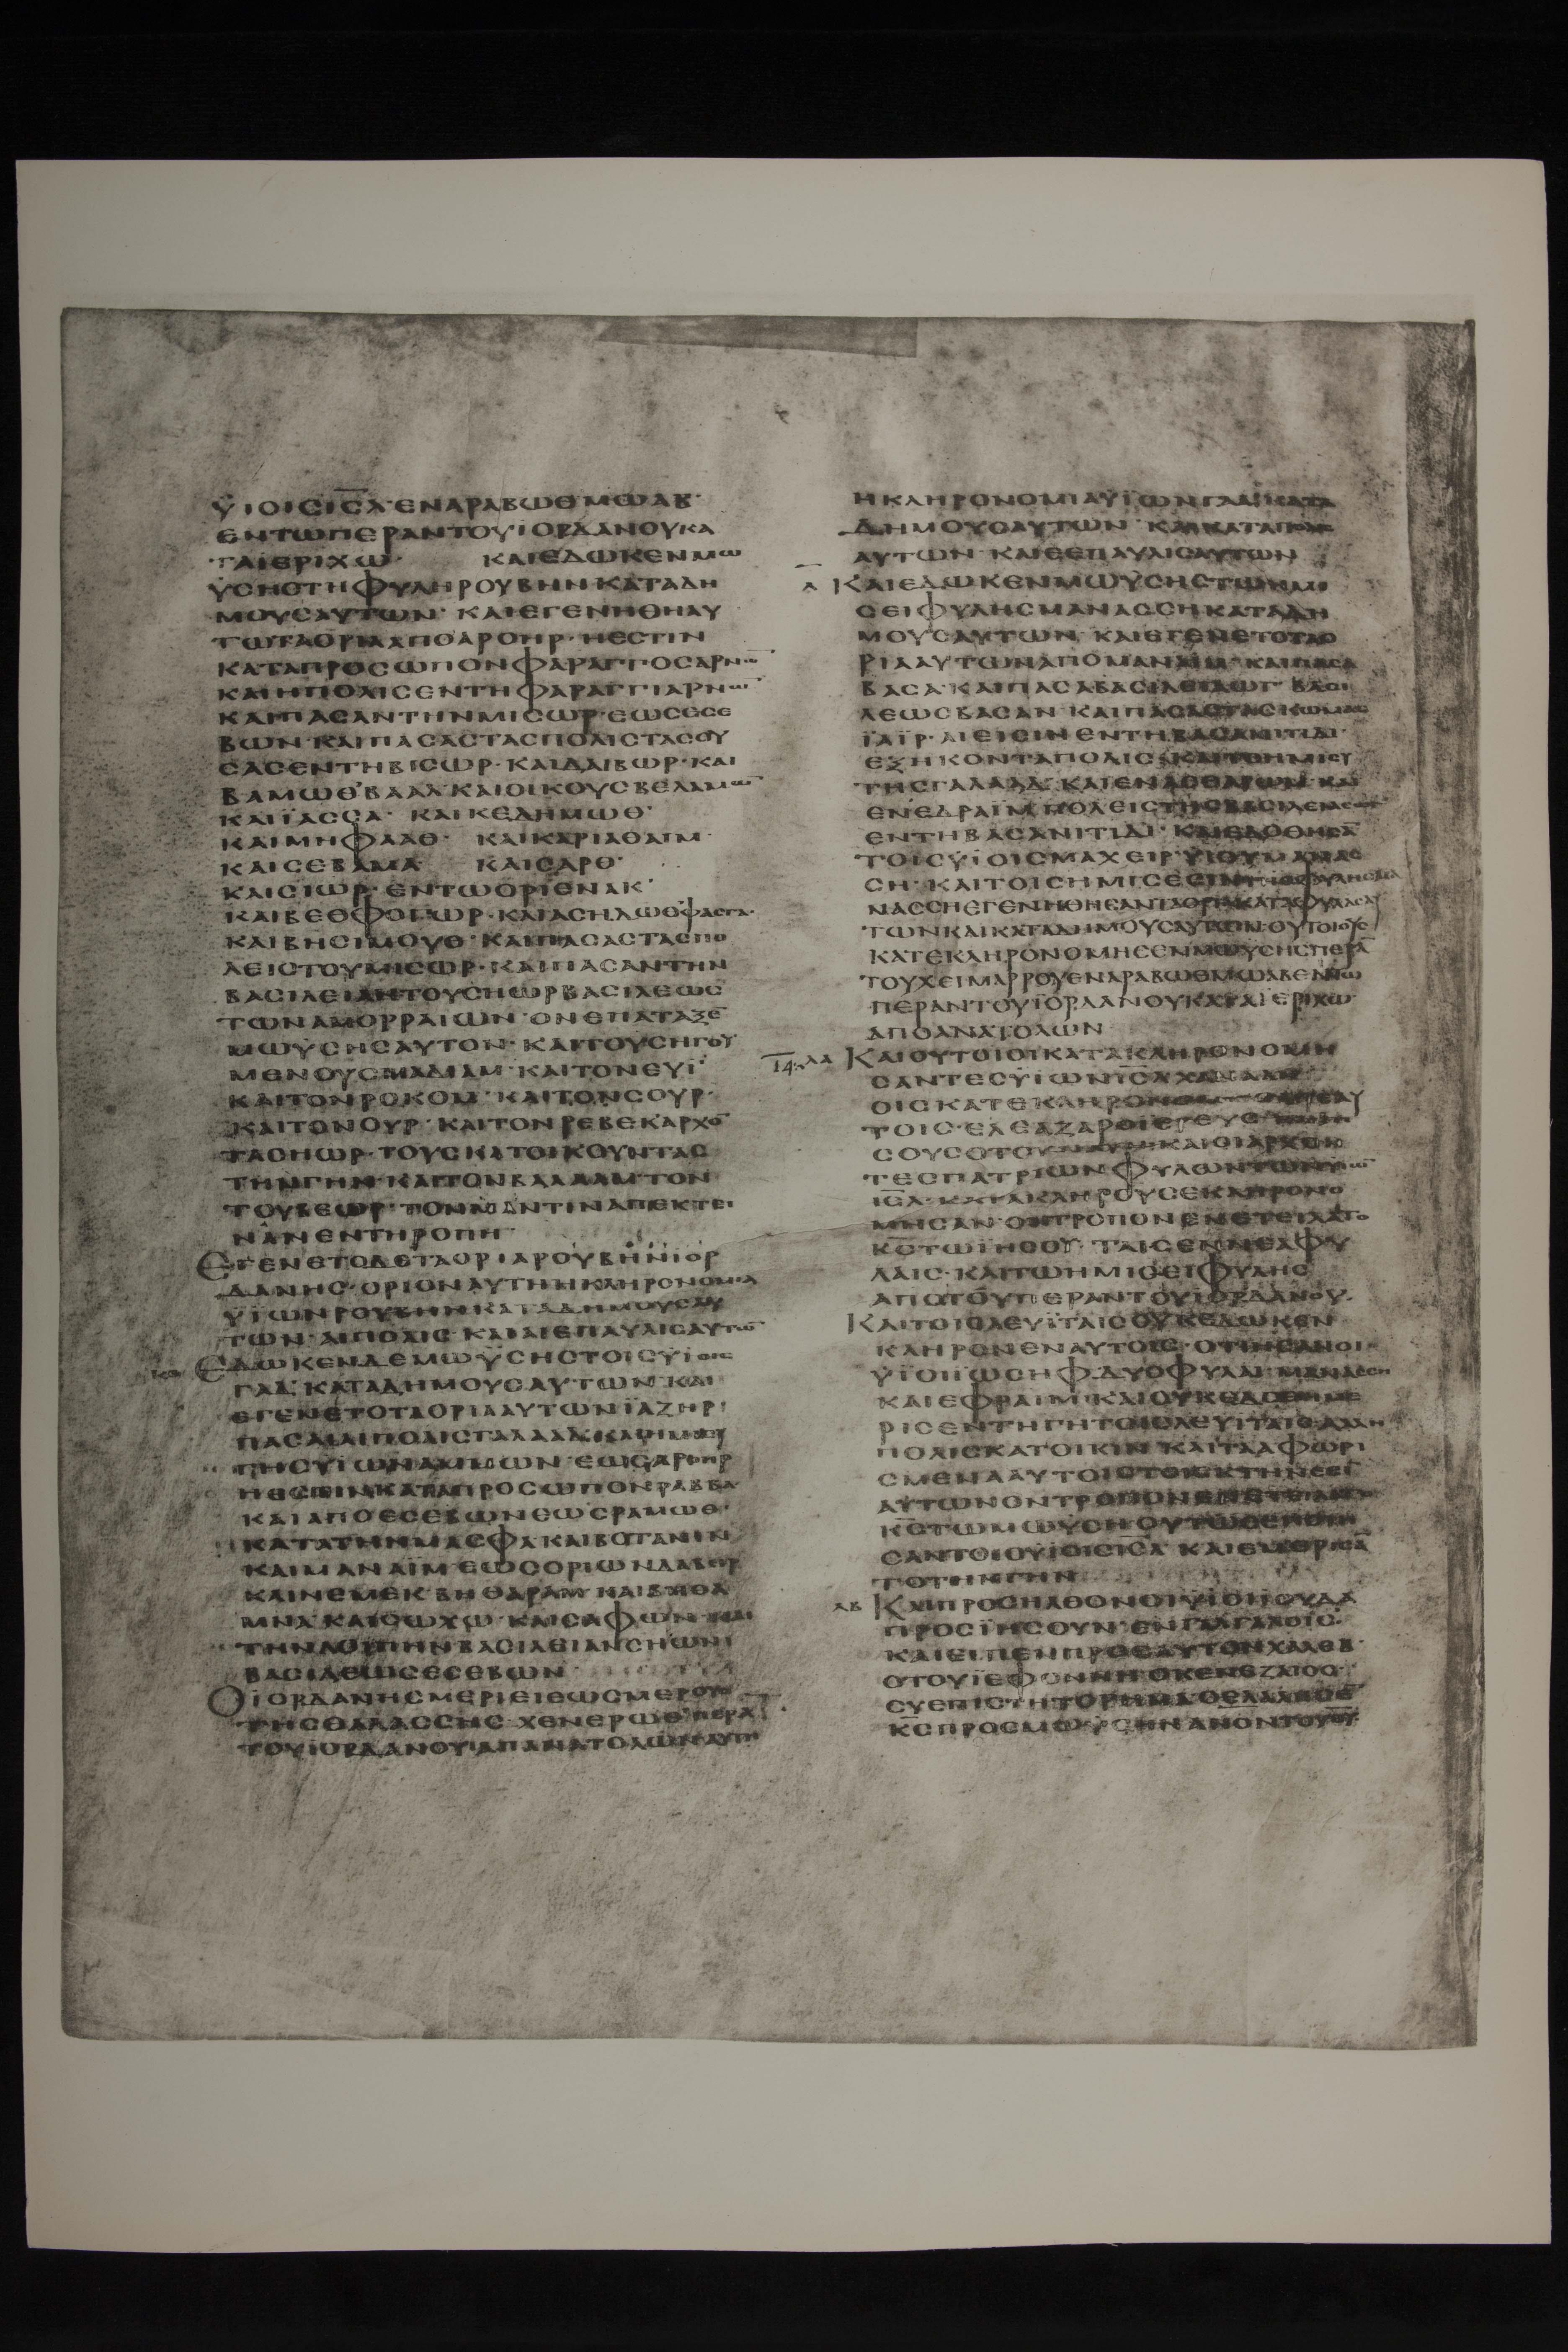 ΫΙΟΙϹΙ͞Ϲ͞Λ·ΕΝΑΡΑΒΩΘΜΩΑΒ·
ΕΝΤΩΠΕΡΑΝΤΟΥΙΟΡΔΑΝΟΥΚΑ
ΤΑΙΕΡΙΧΩ· ΚΑΙΕΔΩΚΕΝΜΩ
ΫϹΗϹΤΗΦΥΛΗΡΟΥΒΗΝΚΑΤΑΔΗ
ΜΟΥϹΑΥΤΩΝ· ΚΑΙΕΓΕΝΗΘΗΑΥ
ΤΩΤΑΟΡΙΑΑΠΟΑΡΟΗΡ·ΗΕϹΤΙΝ
ΚΑΤΑΠΡΟϹΩΠΟΝΦΑΡΑΓΓΟϹΑΡΝΩ̅
ΚΑΙΗΠΟΛΙϹΕΝΤΗΦΑΡΑΓΓΙΑΡΝΩ̅
ΚΑΙΠΑϹΑΝΤΗΝΜΙϹΩΡ·ΕΩϹΕϹΕ
ΒΩΝ·ΚΑΙΠΑϹΑϹΤΑϹΠΟΛΙϹΤΑϹΟΥ
ϹΑϹΕΝΤΗΒΙϹΩΡ·ΚΑΙΔΑΙΒΩΡ·ΚΑΙ
ΒΑΜΩΘΒΑΑΛ·ΚΑΙΟΙΚΟΥϹΒΕΛΑΜΩ̅
ΚΑΙΪΑϹϹΑ· ΚΑΙΚΕΔΗΜΩΘ·
ΚΑΙΜΗΦΑΑΘ· ΚΑΙΚΑΡΙΑΘΑΙΜ·
ΚΑΙϹΕΒΑΜΑ· ΚΑΙϹΑΡΘ·
ΚΑΙϹΙΩΡ·ΕΝΤΩΟΡΙΕΝΑΚ·
ΚΑΙΒΕΘΦΟΓΩΡ·ΚΑΙΑϹΗΔΩΘΦΑϹΓΑ·
ΚΑΙΒΗϹΙΜΟΥΘ·ΚΑΙΠΑϹΑϹΤΑϹΠΟ
ΛΕΙϹΤΟΥΜΙϹΩΡ·ΚΑΙΠΑϹΑΝΤΗΝ
ΒΑϹΙΛΕΙΑΝΤΟΥϹΗΩΡΒΑϹΙΛΕΩϹ
ΤΩΝΑΜΟΡΡΑΙΩΝ·ΟΝΕΠΑΤΑΞΕ̅
ΜΩΫϹΗϹΑΥΤΟΝ·ΚΑΙΤΟΥϹΗΓΟΥ
ΜΕΝΟΥϹΜΑΔΙΑΜ·ΚΑΙΤΟΝΕΥΙ·
ΚΑΙΤΟΝΡΟΚΟΜ·ΚΑΙΤΟΝϹΟΥΡ·
ΚΑΙΤΟΝΟΥΡ·ΚΑΙΤΟΝΡΕΒΕΚΑΡΧΟ̅
ΤΑϹΗΩΡ·ΤΟΥϹΚΑΤΟΙΚΟΥΝΤΑϹ
ΤΗΝΓΗΝ·ΚΑΙΤΟΝΒΑΛΑΑΜΤΟΝ
ΤΟΥΒΕΩΡ·ΤΟΝΜΑΝΤΙΝΑΠΕΚΤΕΙ
ΝΑΝΕΝΤΗΡΟΠΗ·
ΕΓΕΝΕΤΟΔΕΤΑΟΡΙΑΡΟΥΒΗΝΙΟΡ
ΔΑΝΗϹ·ΟΡΙΟΝΑΥΤΗΗΚΛΗΡΟΝΟΜΙΑ
ΫΙΩΝΡΟΥΒΗΝΚΑΤΑΔΗΜΟΥϹΑΥ
ΤΩΝ·ΑΙΠΟΛΙϹ·ΚΑΙΑΙΕΠΑΥΛΙϹΑΥΤΩ̅
ΕΔΩΚΕΝΔΕΜΩΫϹΗϹΤΟΙϹΥΙΟΙϹ
ΓΑΔ·ΚΑΤΑΔΗΜΟΥϹΑΥΤΩΝ·ΚΑΙ
ΕΓΕΝΕΤΟΤΑΟΡΙΑΑΥΤΩΝΪΑΖΗΡ·
ΠΑϹΑΙΑΙΠΟΛΙϹΓΑΛΑΑΔ·ΚΑΙΗΜΙϹΥ
ΓΗϹΥΙΩΝΑΜΜΩΝ·ΕΩϹΑΡΟΗΡ
ΗΕϹΤΙΝΚΑΤΑΠΡΟϹΩΠΟΝΡΑΒΒΑ·
ΚΑΙΑΠΟΕϹΕΒΩΝΕΩϹΡΑΜΩΘ·
ΚΑΤΑΤΗΝΜΑϹΦΑ·ΚΑΙΒΟΤΑΝΙΝ
ΚΑΙΜΑΝΑΪΜΕΩϹΟΡΙΩΝΔΑΒΕΙΡ
ΚΑΙΝΕΜΕΚ·ΒΗΘΑΡΑΜ·ΚΑΙΒΗΘΑ
ΜΝΑ·ΚΑΙϹΩΧΩ·ΚΑΙϹΑΦΩΝ·ΚΑΙ
ΤΗΝΛΟΙΠΗΝΒΑϹΙΛΕΙΑΝϹΗΩΝ
ΒΑϹΙΛΕΩϹΕϹΕΒΩΝ·
ΟΙΟΡΔΑΝΗϹΜΕΡΙΕΙΕΩϹΜΕΡΟΥϹ
ΤΗϹΘΑΛΑϹϹΗϹ·ΧΕΝΕΡΩΘΠΕΡΑ̅
ΤΟΥΙΟΡΔΑΝΟΥΑΠΑΝΑΤΟΛΩΝΑΥΤΗ
ΗΚΛΗΡΟΝΟΜΙΑΫΙΩΝΓΑΔ·ΚΑΤΑ
ΔΗΜΟΥϹΑΥΤΩΝ·ΚΑΙΚΑΤΑΠΟΛΙϹ
ΑΥΤΩΝ·ΚΑΙΕΕΠΑΥΛΙϹΑΥΤΩΝ
ΚΑΙΕΔΩΚΕΝΜΩΫϹΗϹΤΩΗΜΙ
ϹΕΙΦΥΛΗϹΜΑΝΑϹϹΗΚΑΤΑΔΗ
ΜΟΥϹΑΥΤΩΝ·ΚΑΙΕΓΕΝΕΤΟΤΑΟ
ΡΙΑΑΥΤΩΝΑΠΟΜΑΝΑΙΜ·ΚΑΙΠΑϹΑ
ΒΑϹΑ·ΚΑΙΠΑϹΑΒΑϹΙΛΕΙΑΩΓ·ΒΑϹΙ
ΛΕΩϹΒΑϹΑΝ·ΚΑΙΠΑϹΑϹΤΑϹΚΩΜΑϹ
ΪΑΪΡ·ΑΙΕΙϹΙΝΕΝΤΗΒΑϹΑΝΙΤΙΔΙ·
ΕΞΗΚΟΝΤΑΠΟΛΙϹ·ΚΑΙΤΟΗΜΙϹΥ
ΤΗϹΓΑΛΑΑΔ·ΚΑΙΕΝΑϹΘΑΡΩΜ·ΚΑΙ
ΕΝΕΔΡΑΪΜ·ΠΟΛΕΙϹΤΗϹΒΑϹΙΛΕΙΑϹΩΓ
ΕΝΤΗΒΑϹΑΝΙΤΙΔΙ·ΚΑΙΕΔΟΘΗϹΑ̅
ΤΟΙϹΫΙΟΙϹΜΑΧΕΙΡ·ΫΙΟΥΜΑΝΑϹ
ϹΗ·ΚΑΙΤΟΙϹΗΜΙϹΕϹΙΝ
ΝΑϹϹΗΕΓΕΝΗΘΗϹΑΝΤΑΟΡΙΑΚΑΤΑΦΥΛΑϹΑΥ
ΤΩΝΚΑΙΚΑΤΑΔΗΜΟΥϹΑΥΤΩΝ·ΟΥΤΟΙΟΥϹ
ΚΑΤΕΚΛΗΡΟΝΟΜΗϹΕΝΜΩΥϹΗϹΠΕΡΑ̅
ΤΟΥΧΕΙΜΑΡΡΟΥΕΝΑΡΑΒΩΘΜΩΑΒΕΝΤΩ
ΠΕΡΑΝΤΟΥΪΟΡΔΑΝΟΥΚΑΤΑΪΕΡΙΧΩ·
ΑΠΟΑΝΑΤΟΛΩΝ
ΚΑΙΟΥΤΟΙΟΙΚΑΤΑΚΛΗΡΟΝΟΜΗ
ϹΑΝΤΕϹΫΙΩΝΙ͞Ϲ͞ΛΧΑΝΑΑΝ
ΟΙϹΚΑΤΕΚΛΗΡΟΝΟΜΗϹΕΝΑΥ
ΤΟΙϹ·ΕΛΕΑΖΑΡΟΙΕΡΕΥϹ
ϹΟΥϹΟΤΟΥΝΑΥΗ·ΚΑΙΟΙΑΡΧΟΝ
ΤΕϹΠΑΤΡΙΩΝΦΥΛΩΝΤΩΝΥΙΩ̅
Ι͞Ϲ͞Λ·ΚΑΤΑΚΛΗΡΟΥϹΕΚΛΗΡΟΝΟ
ΜΗϹΑΝ·ΟΝΤΡΟΠΟΝΕΝΕΤΕΙΛΑΤΟ
Κ͞Ϲ͞ΤΩΙΗϹΟΥ·ΤΑΙϹΕΝΝΕΑΦΥ
ΛΑΙϹ·ΚΑΙΤΩΗΜΙϹΕΙΦΥΛΗϹ
ΑΠΟΤΟΥΠΕΡΑΝΤΟΥΙΟΡΔΑΝΟΥ·
ΚΑΙΤΟΙϹΛΕΥΪΤΑΙϹΟΥΚΕΔΩΚΕΝ
ΚΛΗΡΟΝΕΝΑΥΤΟΙϹ·ΟΤΙΗϹΑΝΟΙ
ΫΪΟΙΪΩϹΗΦ·ΔΥΟΦΥΛΑΙ·ΜΑΝΑϹϹΗ
ΚΑΙΕΦΡΑΙΜ·ΚΑΙΟΥΚΕΔΟΘΗΜΕ
ΡΙϹΕΝΤΗΓΗΤΟΙϹΛΕΥΙΤΑΙϹ·ΑΛΛΗ
ΠΟΛΙϹΚΑΤΟΙΚΙΝ·ΚΑΙΤΑΑΦΩΡΙ
ϹΜΕΝΑΑΥΤΟΙϹΤΟΙϹΚΤΗΝΕϹΙ
ΑΥΤΩΝΟΝΤΡΟΠΟΝΕΝΕΤΕΙΛΑΤΟ
Κ͞Ϲ͞ΤΩΜΩΥϹΗ·ΟΥΤΩϹΕΠΟΙΗ
ϹΑΝΤΟΙΟΥΪΟΙϹΙ͞Ϲ͞Λ·ΚΑΙΕΜΕΡΙϹΑ̅
ΤΟΤΗΝΓΗΝ
ΚΑΙΠΡΟϹΗΛΘΟΝΟΙΥΪΟΙΪΟΥΔΑ
ΠΡΟϹΪΗϹΟΥΝ·ΕΝΓΑΛΓΑΛΟΙϹ·
ΚΑΙΕΙΠΕΝΠΡΟϹΑΥΤΟΝΧΑΛΕΒ·
ΟΤΟΥΪΕΦΟΝΝΗΟΚΕΝΕΖΑΙΟϹ·
ϹΥΕΠΙϹΤΗΤΟΡΗΜΑΟΕΛΑΛΗϹΕ̅
Κ͞Ϲ͞ΠΡΟϹΜΩΥϹΗΝΑΝΟΝΤΟΥΘ͞Υ͞